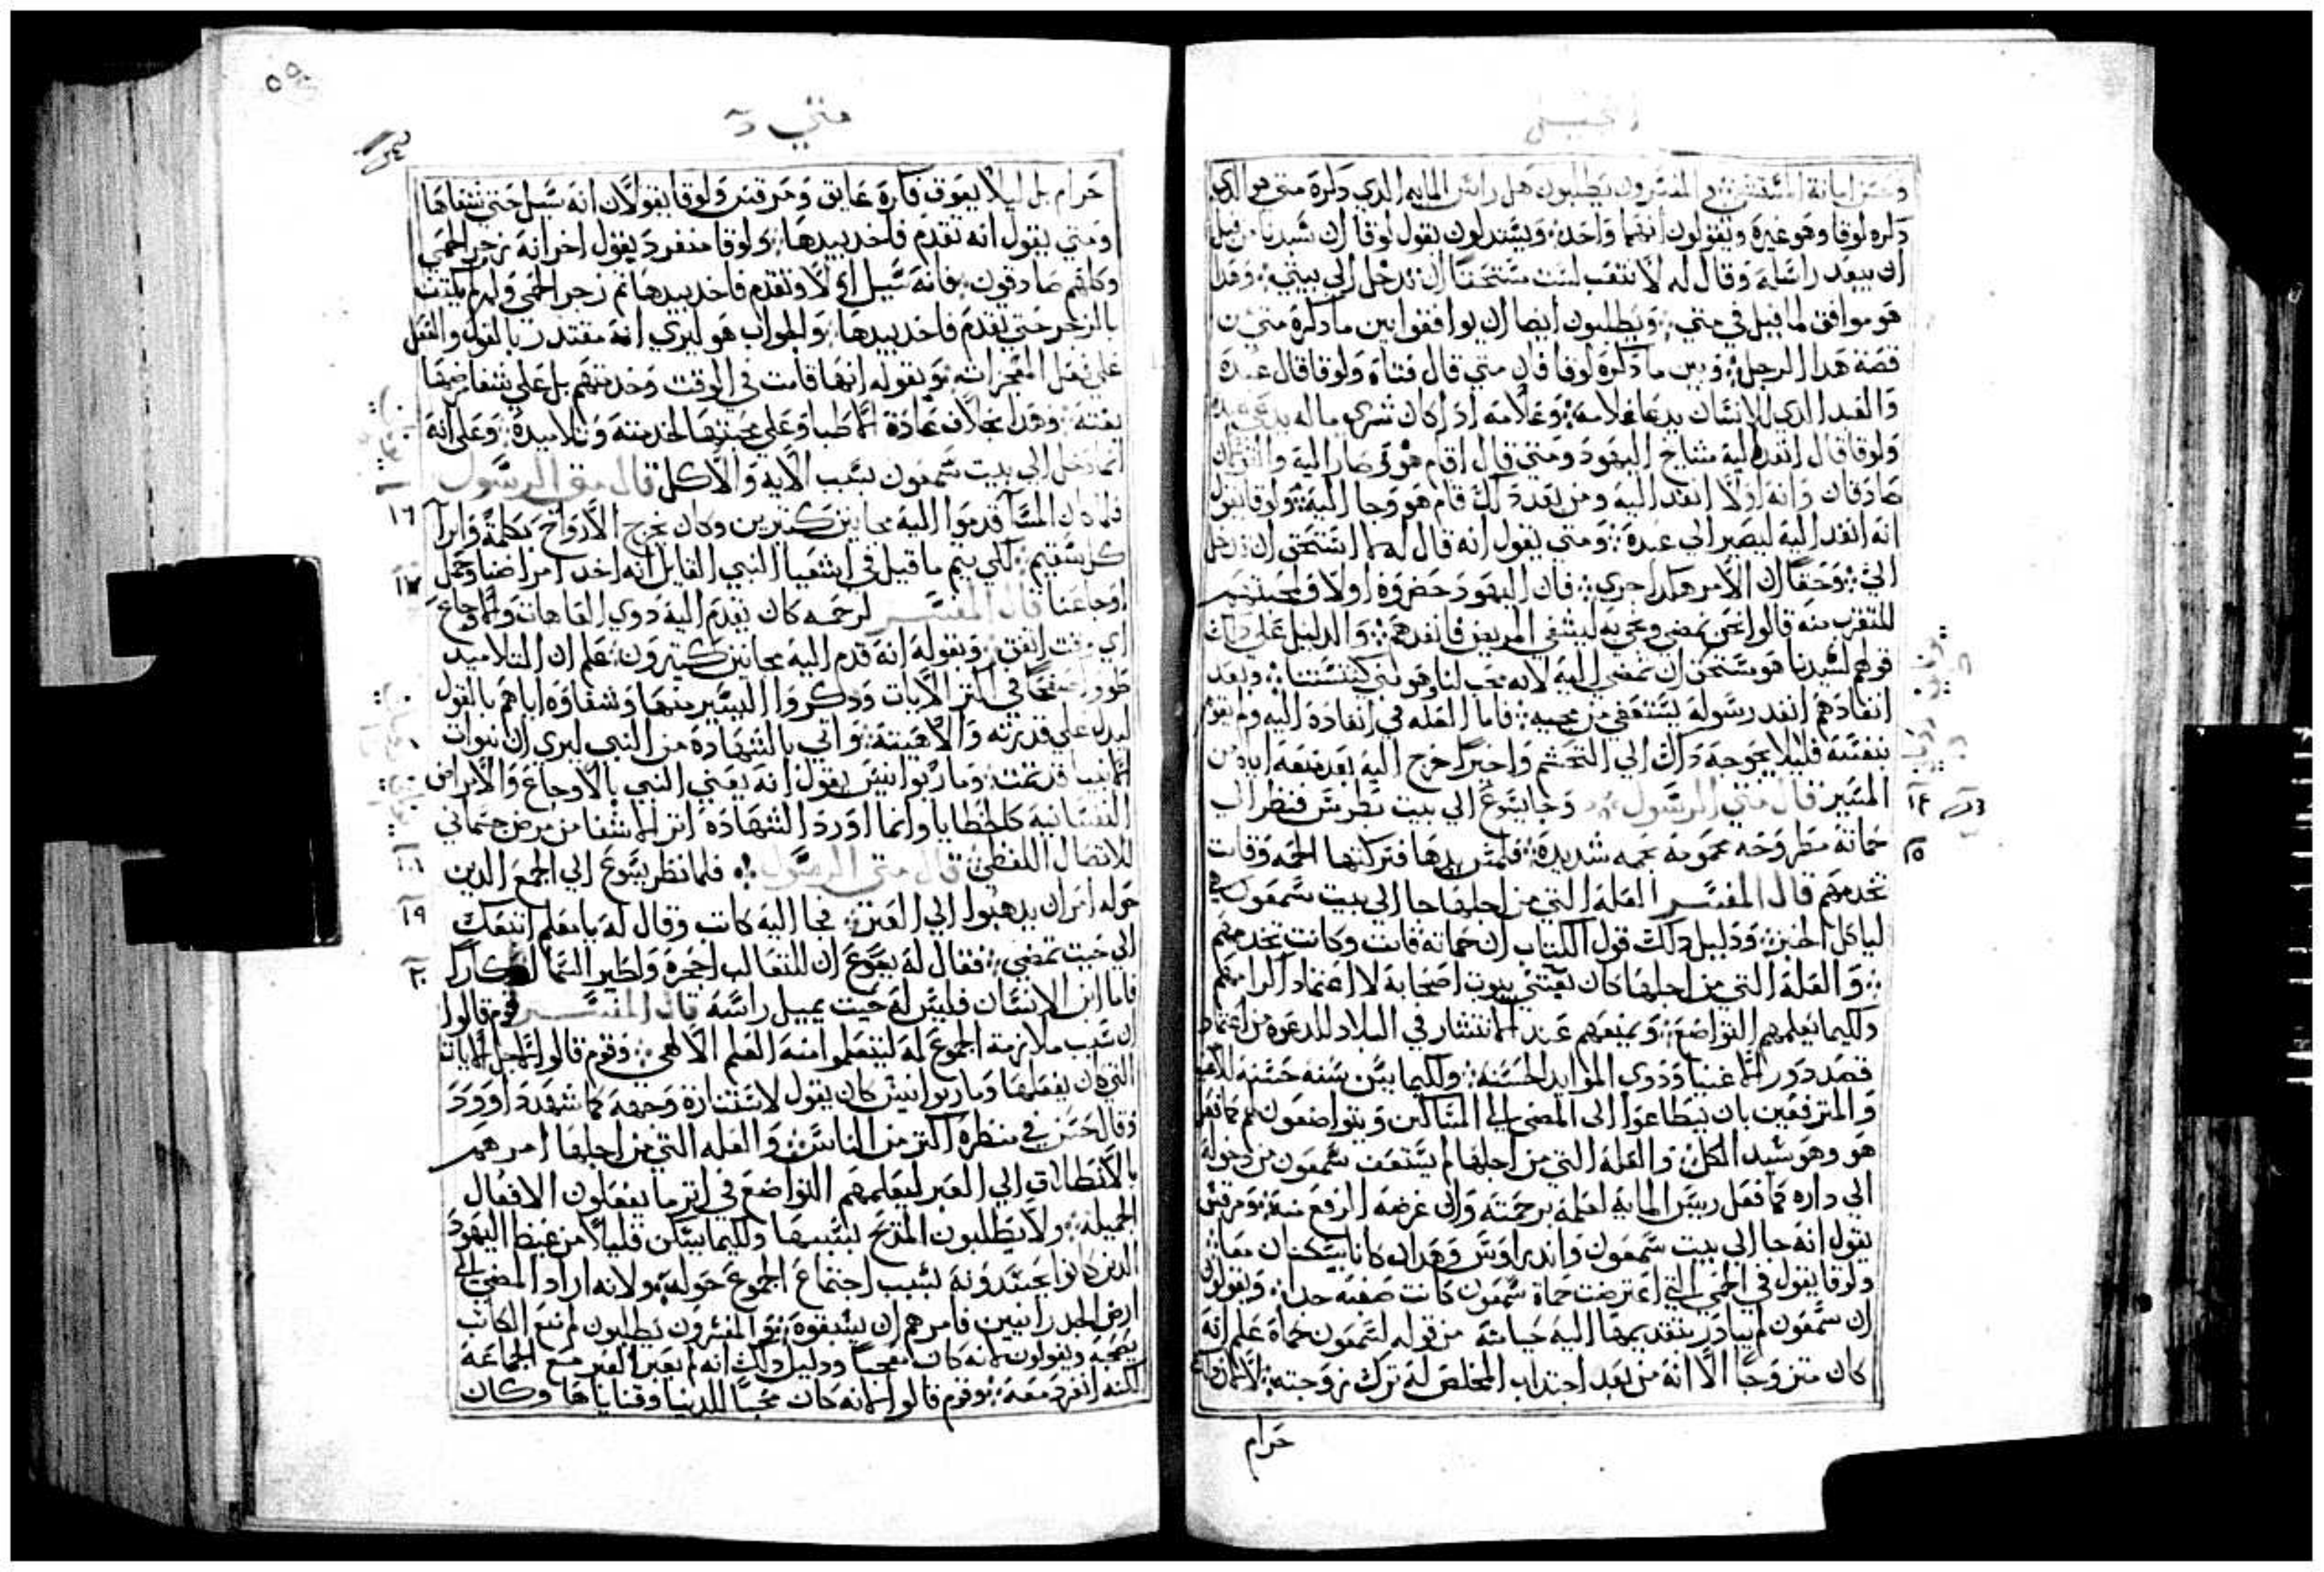 انجيل
وحسن امانة المستشفي والمفسرون يطلبون هل رايس المايه الدي دكره متي هو الدي
دكره لوقا وهو غيره ويقولون انهما واحد ويستدلون بقول لوقا ان سيدنا من قبل
ان يبعد راسله وقال له لا تتعب لست مستحقا ان تدخل الي بيتي وهدا
هو موافق لما قيل في متي ويطلبون ايضا ان يوافقوا بين ما دكره متي من
قصة هدا الرجل وبين ما دكره لوقا فان متي قال فتاه ولوقا قال عبده
والعبد الدي للانسان يدعا غلامه وغلامه ادا كان شري ماله يدعي عبده
ولوقا قال انفد اليه مشايخ اليهود ومتي قال اقام هو وصار اليه والقولان
صادقان وانه اولا انفد اليه ومن بعد دلك قام هو وجا اليه ولوقا يقول
انه انفد اليه ليصير الي عبده ومتي يقول انه قال له ما استحق ان تدخل
الي وحقا ان الامر هكدا جري فان اليهود حضروه اولا في محبتهم
للتقرب منه قالوا نحن نمضي ونجي به ليشفي المريض فانفدهم والدليل علي دلك
قولهم لسيدنا هو مستحق ان تمضي اليه لانه محب لنا وهو بني كنيستنا وبعد
انفادهم انفد رسوله يستعفي من مجيه فاما العله في انفاده اليه ولم يقوم
بنفسه فليلا يحوجه داك الي التجشم واخيرا خرج اليه بعد منعه اياه من
المسير قال متي الرسول وجا يسوع الي بيت بطرس فنظر الي
١٤
حماته مطروحه محمومه بحمه شديدة فلمس يدها فتركتها الحمه وقامت
١٥
تخدمهم قال المفسر العله التي من اجلها جا الي بيت سمعون هي
لياكل الخبز ودليل دلك قول الكتاب ان حماته قامت وكانت تخدمهم
والعلة التي من اجلها كان يغشي بيوت اصحابه لا اعتماد اكرامهم
ولكيما يعلمهم التواضع ويمنعهم عند الانتشار في البلاد للدعوه من اعتماد
قصد دور الاغنيا ودوي الموايد الحسنه ولكيما يبين سنه حسنه للاغنيا
والمترفعين بان يتطاعوا الي المضي الي المساكين ويتواضعون لهم كما فعل
هو وهو سيد الكل والعله التي من اجلها لم يستعف سمعون من دخوله
الي داره كما فعل رييس المايه لعلمه برحمته وان غرضه ارفع منه ومرقس
يقول انه جا الي بيت سمعون واندراوس وهدان كانا يسكنان معا
ولوقا يقول في الحمي التي اعترضت حماة سمعون كانت صعبه جدا ويقولون
ان سمعون لم يبادر بتقديمها اليه من قوله لسمعون حماه علم انه
كان متزوجا الا انه من بعد اجتداب المخلص له ترك زوجته
حرام
٥٥
متي د
حرام بل ليلا يعوق فكره عايق ومرقس ولوقا يقولان انه سيل حتي شفاها
ومتي يقول انه تقدم فاخد بيدها ولوقا منفرد يقول اخر انه زجر الحمي
وكلهم صادقون فانه سيل اولا وتقدم فاخد بيدها ثم زجر الحمي ولم لم يكتف
بالزجر حتي تقدم فاخد بيدها والجواب هو ليري انه مقتدر بالقول والفعل
علي فعل المعجزات وبقوله انها قامت في الوقت وخدمتهم بل علي شفا مرضها
بغته وهدا بخلاف عادة الاطبا وعلي محبتها لخدمته وتلاميده وعلي انه
انما دخل الي بيت سمعون بسبب الاية والاكل قال متي الرسول
فلما كان المسا قدموا اليه مجانين كتيرين وكان يخرج الارواح بكلمة وابرا
١٦
كل سقيم لكي يتم ما قيل في اشعيا النبي القايل انه اخد امراضنا وحمل
١٧
اوجاعنا قال المفسر لرحمه كان يقدم اليه دوي العاهات والاوجاع
اي وقت اتفق وبقوله انه قدم اليه مجانين كتيرون علم ان التلاميد
طووا في اكتر الايات ودكروا اليسير منها وشفاوه اياهم بالقول
ليدل علي قدرته والاهيته واتي بالشهادة من النبي ليري ان نبوات
الانبيا قد تمت وماربوانيس يقول انه يعني النبي بالاوجاع والامراض
النفسانية كالخطايا وانما اورد الشهادة اتر الاشفا من مرض جسماني
للاتصال اللفظي قال متي الرسول فلما نظر يسوع الي الجمع الدين
١٨
حوله امر ان يدهبوا الي العبر فجا اليه كاتب وقال له يا معلم اتبعك
١٩
الي حيث تمضي فقال له يسوع ان للتعالب اجحرة ولطير السما اوكارا
٢٠
فاما ابن الانسان فليس له حيت يميل راسه قال المفسر قوم قالوا
ان سبب ملازمة الجموع له ليتعلموا منه العلم الالهي وقوم قالوا لاجل الايات
التي كان يفعلها وماربوانيس كان يقول لاستنارة وجهه كما شهد داوود
وقال حسن في منظره اكتر من الناس والعله التي من اجلها امرهم
بالانطلاق الي العبر ليعلمهم التواضع في اتر ما يفعلون الافعال
الجميله ولا يطلبون المديح بسببها ولكيما يسكن قليلا من غيظ اليهود
الدين كانوا يحسدونه بسبب اجتماع الجموع حوله ولانه اراد المضي الي
ارض الجدرانيين فامرهم ان يسبقوه والمفسرون يطلبون لم تبع الكاتب
بصحبه ويقولون لانه كان معجبا ودليل دلك انه لم يعبر العبر مع الجماعة
لكنه انفرد معه وقوم قالوا لانه كان محبا للدنيا وقناياها وكان